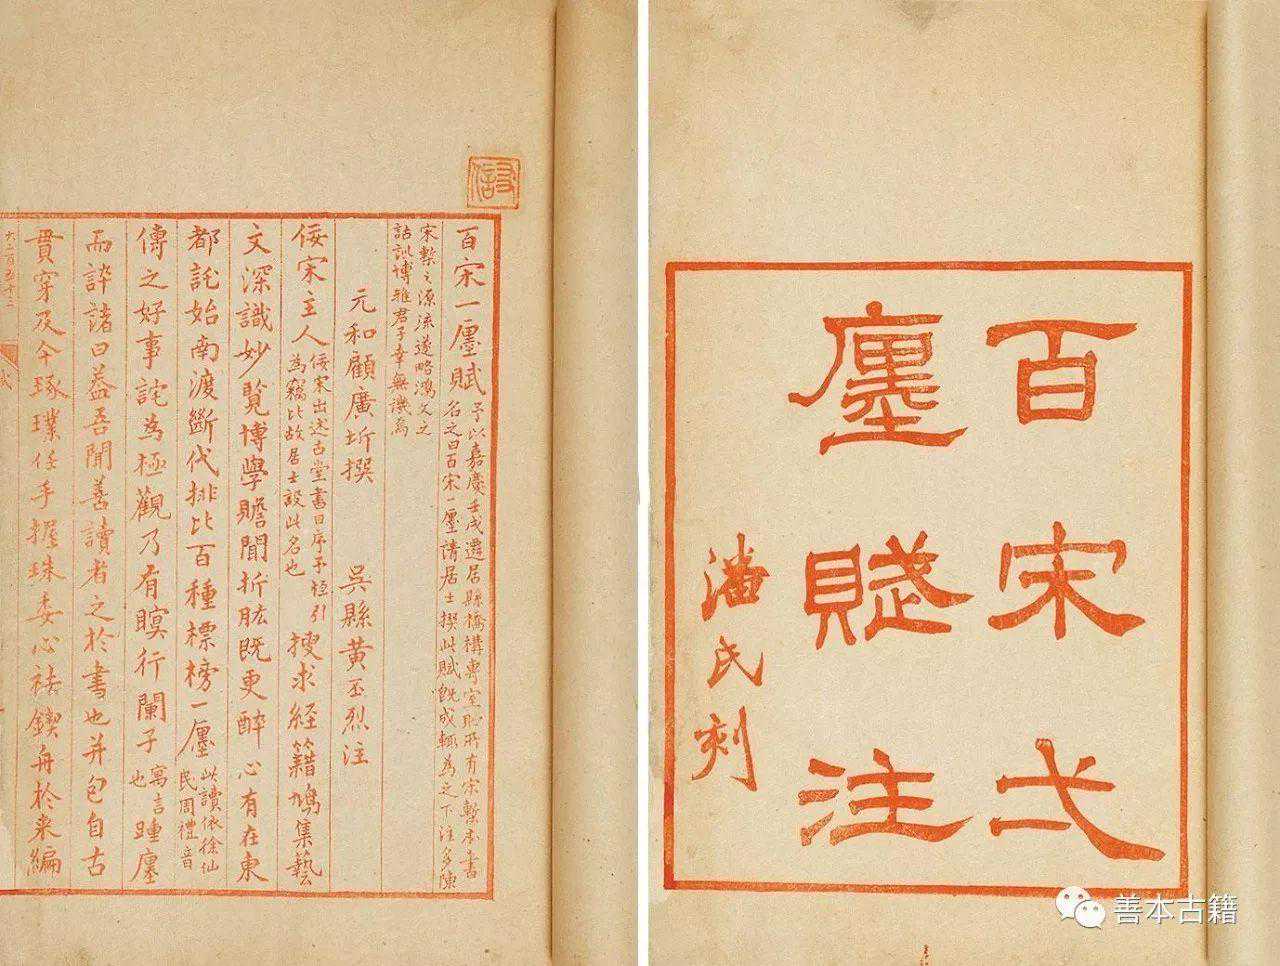 百宋弌
廛賦注
潘氏刻
百宋一廛賦 予以嘉慶壬戌遷居縣橋構專室貯所有宋槧本書
名之曰百宋一廛請居士撰此賦既成輒為之下注多陳
宋槧之源流遂略鴻文之
詁訓博雅君子幸無譏焉
元和顧廣圻撰 吳縣黃丕烈注
佞宋主人 佞宋出述古堂書目序予恒引
為竊比故居士設此名也 搜求經籍鳩集藝
文深識妙覽博學贍聞折肱既更醉心有在東
都託始南渡斷代排比百種標榜一廛 此讀依徐仙
民周禮音
傳之好事詫為極觀乃有瞑行闌子 寓言
也 踵廛
而誶諸曰蓋吾聞善讀者之於書也并包自古
貫穿及今琢璞任手握珠委心袪鍥舟於来編
善本古籍